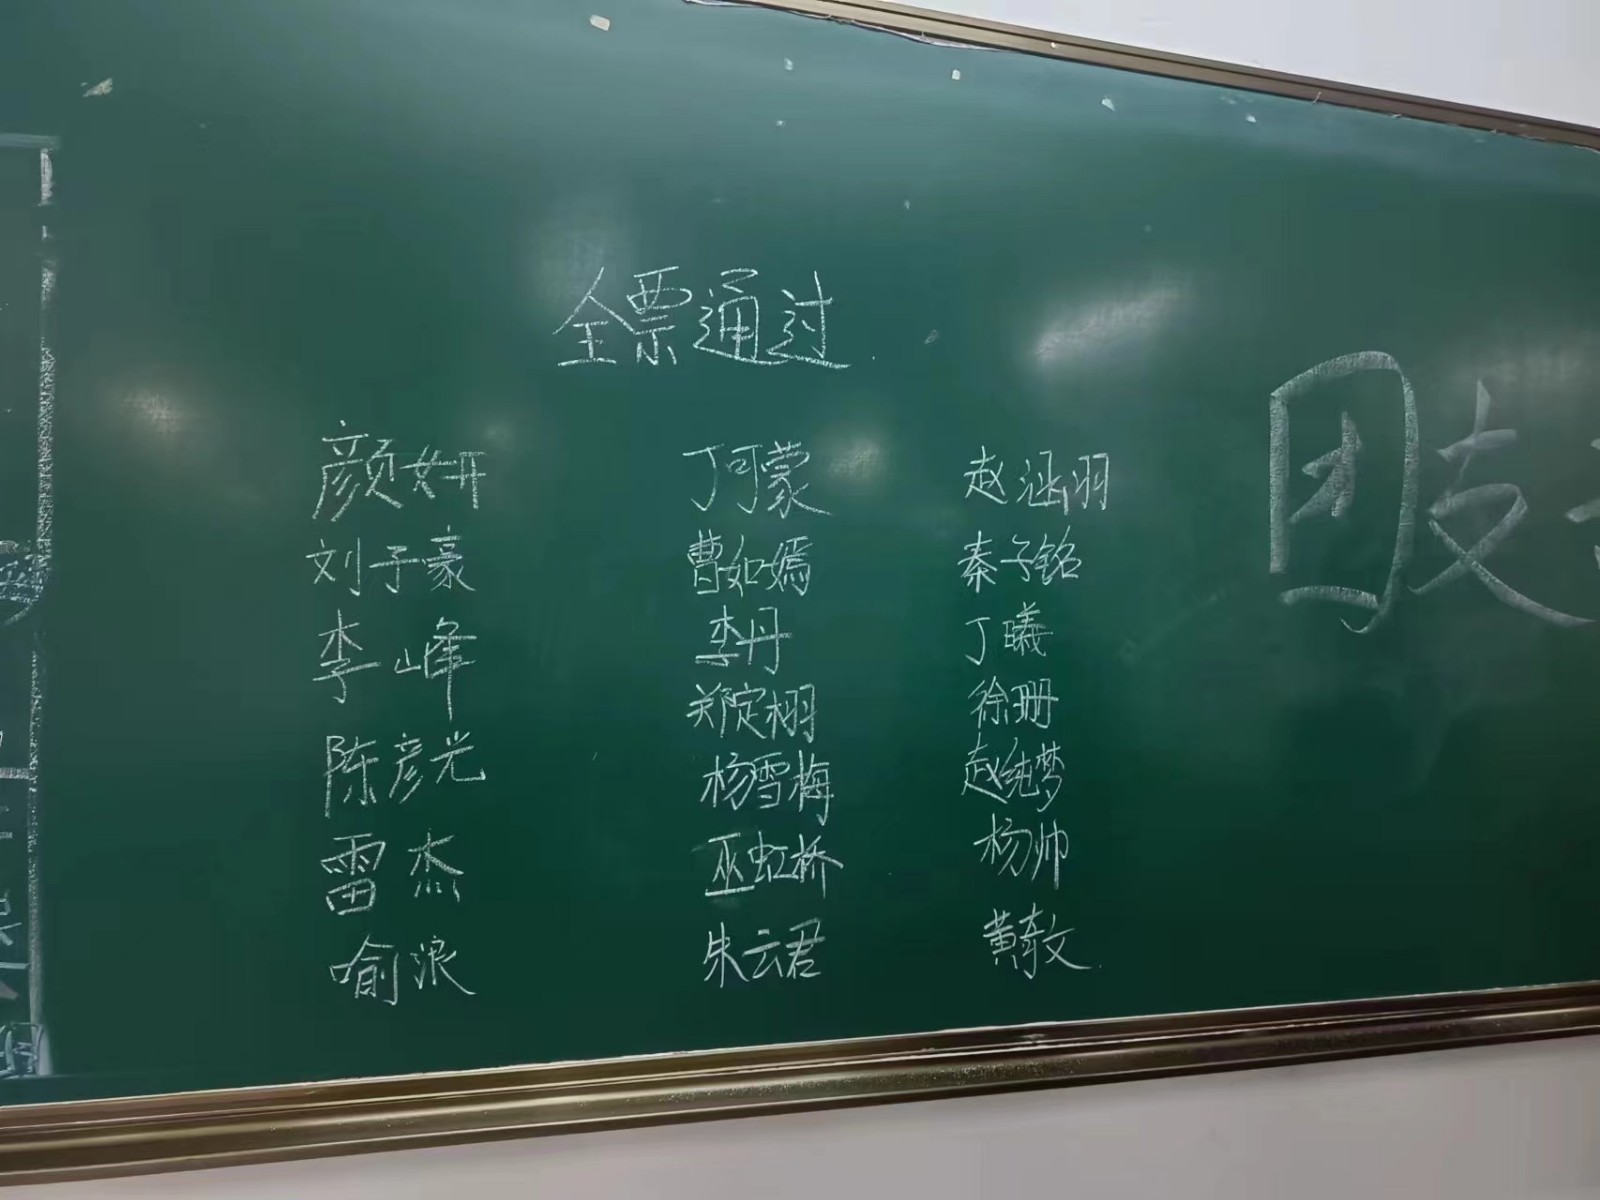 全票通过
颜妍 丁可蒙 赵涵羽
刘子豪 曹如嫣 秦子铭
李峰 李丹 丁曦
陈彦光 郑定栩 徐珊
雷杰 杨雪梅 赵纯梦
喻浪 巫虹桥 杨帅
朱云君 黄敦文
团支